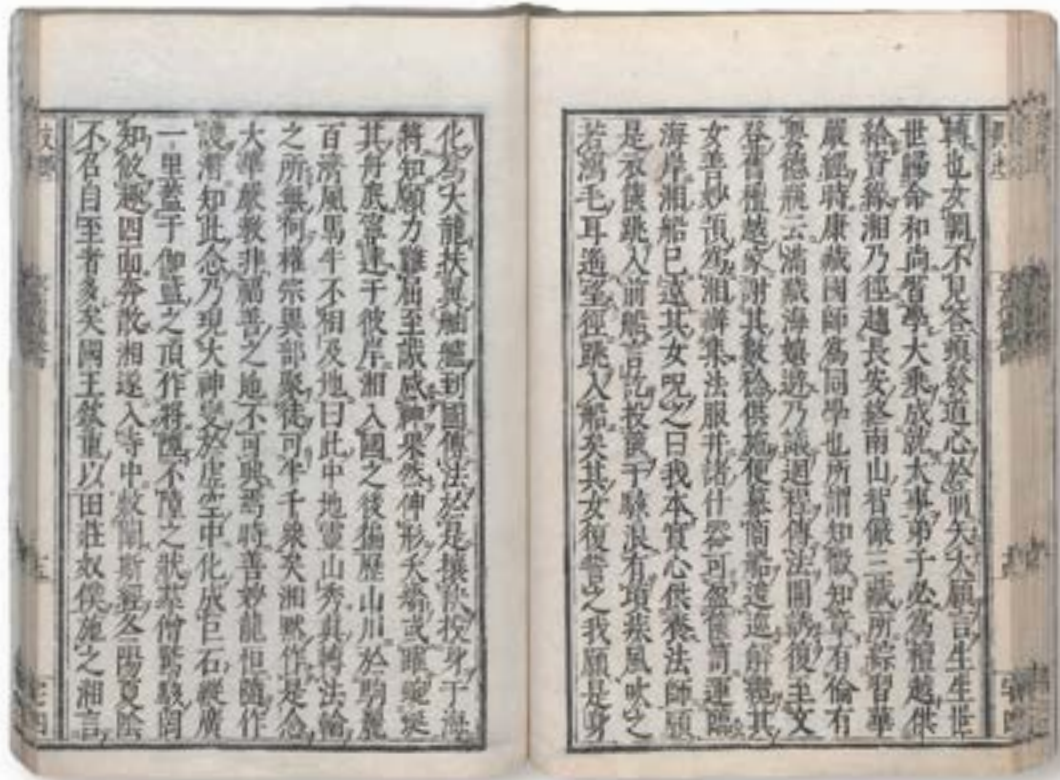 轉也女調不見答頓發道心於前矢大願言生生世
世歸命和尚習學大乘成就大事弟子必爲檀越供
給資緣湘乃徑趨長安終南山智儼三藏所綜習華
嚴經時康藏國師爲同學也所謂知微知章有倫有
要德瓶云滿藏海嬉遊乃議迴程傳法開誘復至文
登舊檀越家謝其數稔供施便慕商船逡巡解纜其
女善妙預爲湘辦集法服并諸什器可盈篋笥運臨
海岸湘船已遠其女呪之曰我本實心供養法師願
是衣篋跳入前船言訖投篋于駭浪有頃疾風吹之
若鴻毛耳遙望徑跳入船矣其女復誓之我願是身
化爲大龍扶翼舳艫到國傳法於是攘袂投身于海
將知願力難屈至誠感神果然伸形夭矯或躍蜿蜒
其舟底寧達于彼岸湘入國之後徧歷山川於駒麗
百濟風馬牛不相及地曰此中地靈山秀眞轉法輪
之所無何權宗異部聚徒可半千衆矣湘默作是念
大華嚴教非福善之地不可興焉時善妙龍恒隨作
護潛知此念乃現大神變於虛空中化成巨石縱廣
一里蓋于伽藍之頂作將墮不墮之狀羣僧驚駭罔
知攸趣四面奔散湘遂入寺中敷闡斯經冬陽夏陰
不召自至者多矣國王欽重以田莊奴僕施之湘言